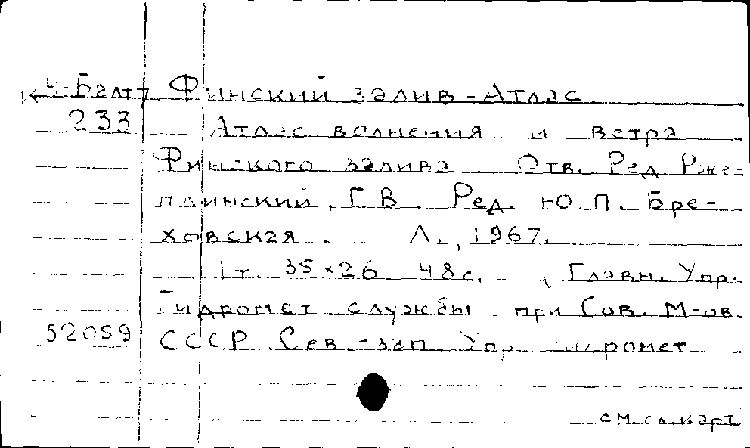 К-Балт Финский залив - Атлас
233 Атлас волнения и ветра
Финского залива Отв. Ред Рже-
плинский, Г.В. Ред. Ю.П. Бре-
ховская. Л., 1967.
1т. 35×26 48с. (Главн. Упр.
Гидромет службы при Сов. М-ов.
52059 СССР Сев.-зап Упр. гидромет
см. сл. карт